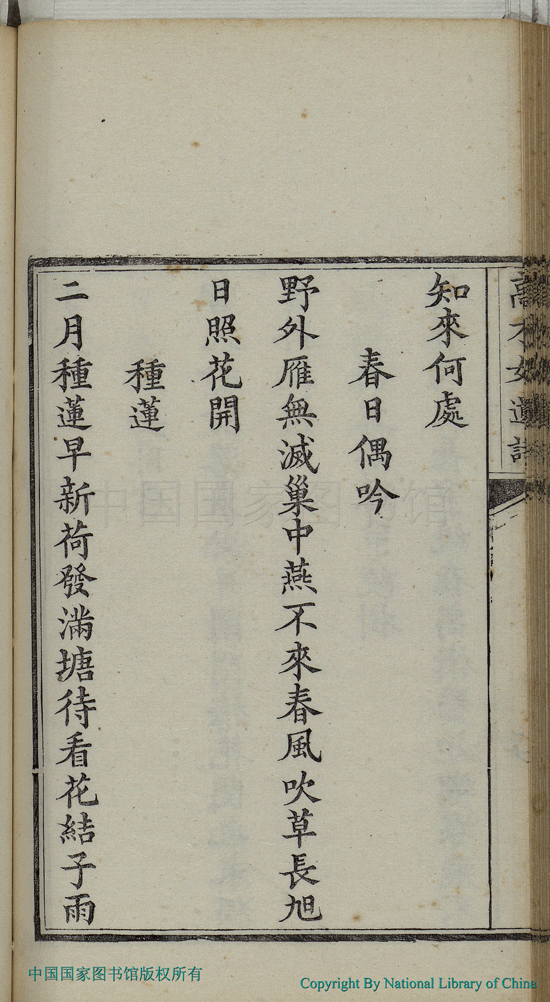 知來何處
春日偶吟
野外雁無滅巢中燕不來春風吹草長旭
日照花開
種蓮
二月種蓮早新荷發滿塘待看花結子雨
中国国家图书馆
中国国家图书馆版权所有
Copyright By National Library of China